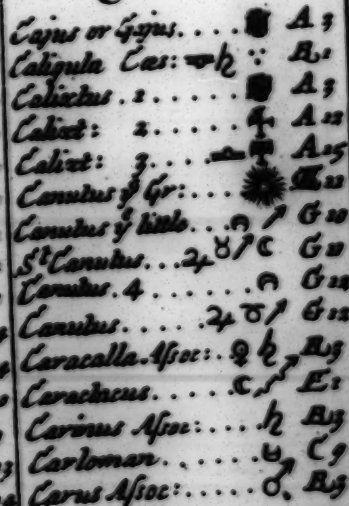 Cajus or Gajus. . . . . A 3
Caligula Cæs: ♄ ∵ B. 1
Calixtus . 1 . . . . . A 3
Calixt: 2 . . . . . A 12
Calixt: 3 . . . . A 15
Canutus yͤ Gr: . . . 11
Canutus yͤ little . . ↗ G 10
Sᵗ Canutus . . . ♃ ♉ ↗ ☾ G 11
Canutus . 4 . . . . . . . G 12
Canutus . . . . . ♃ ↗ G 12
Caracalla Assoc: . ♀ ♄ B. 3
Caractacus . . . . ☾ E. 1
Carinus Assoc: . . . . ♄ B. 3
Carloman . . . . . . C 9
Carus Assoc: . . . . . ♂ . B. 3